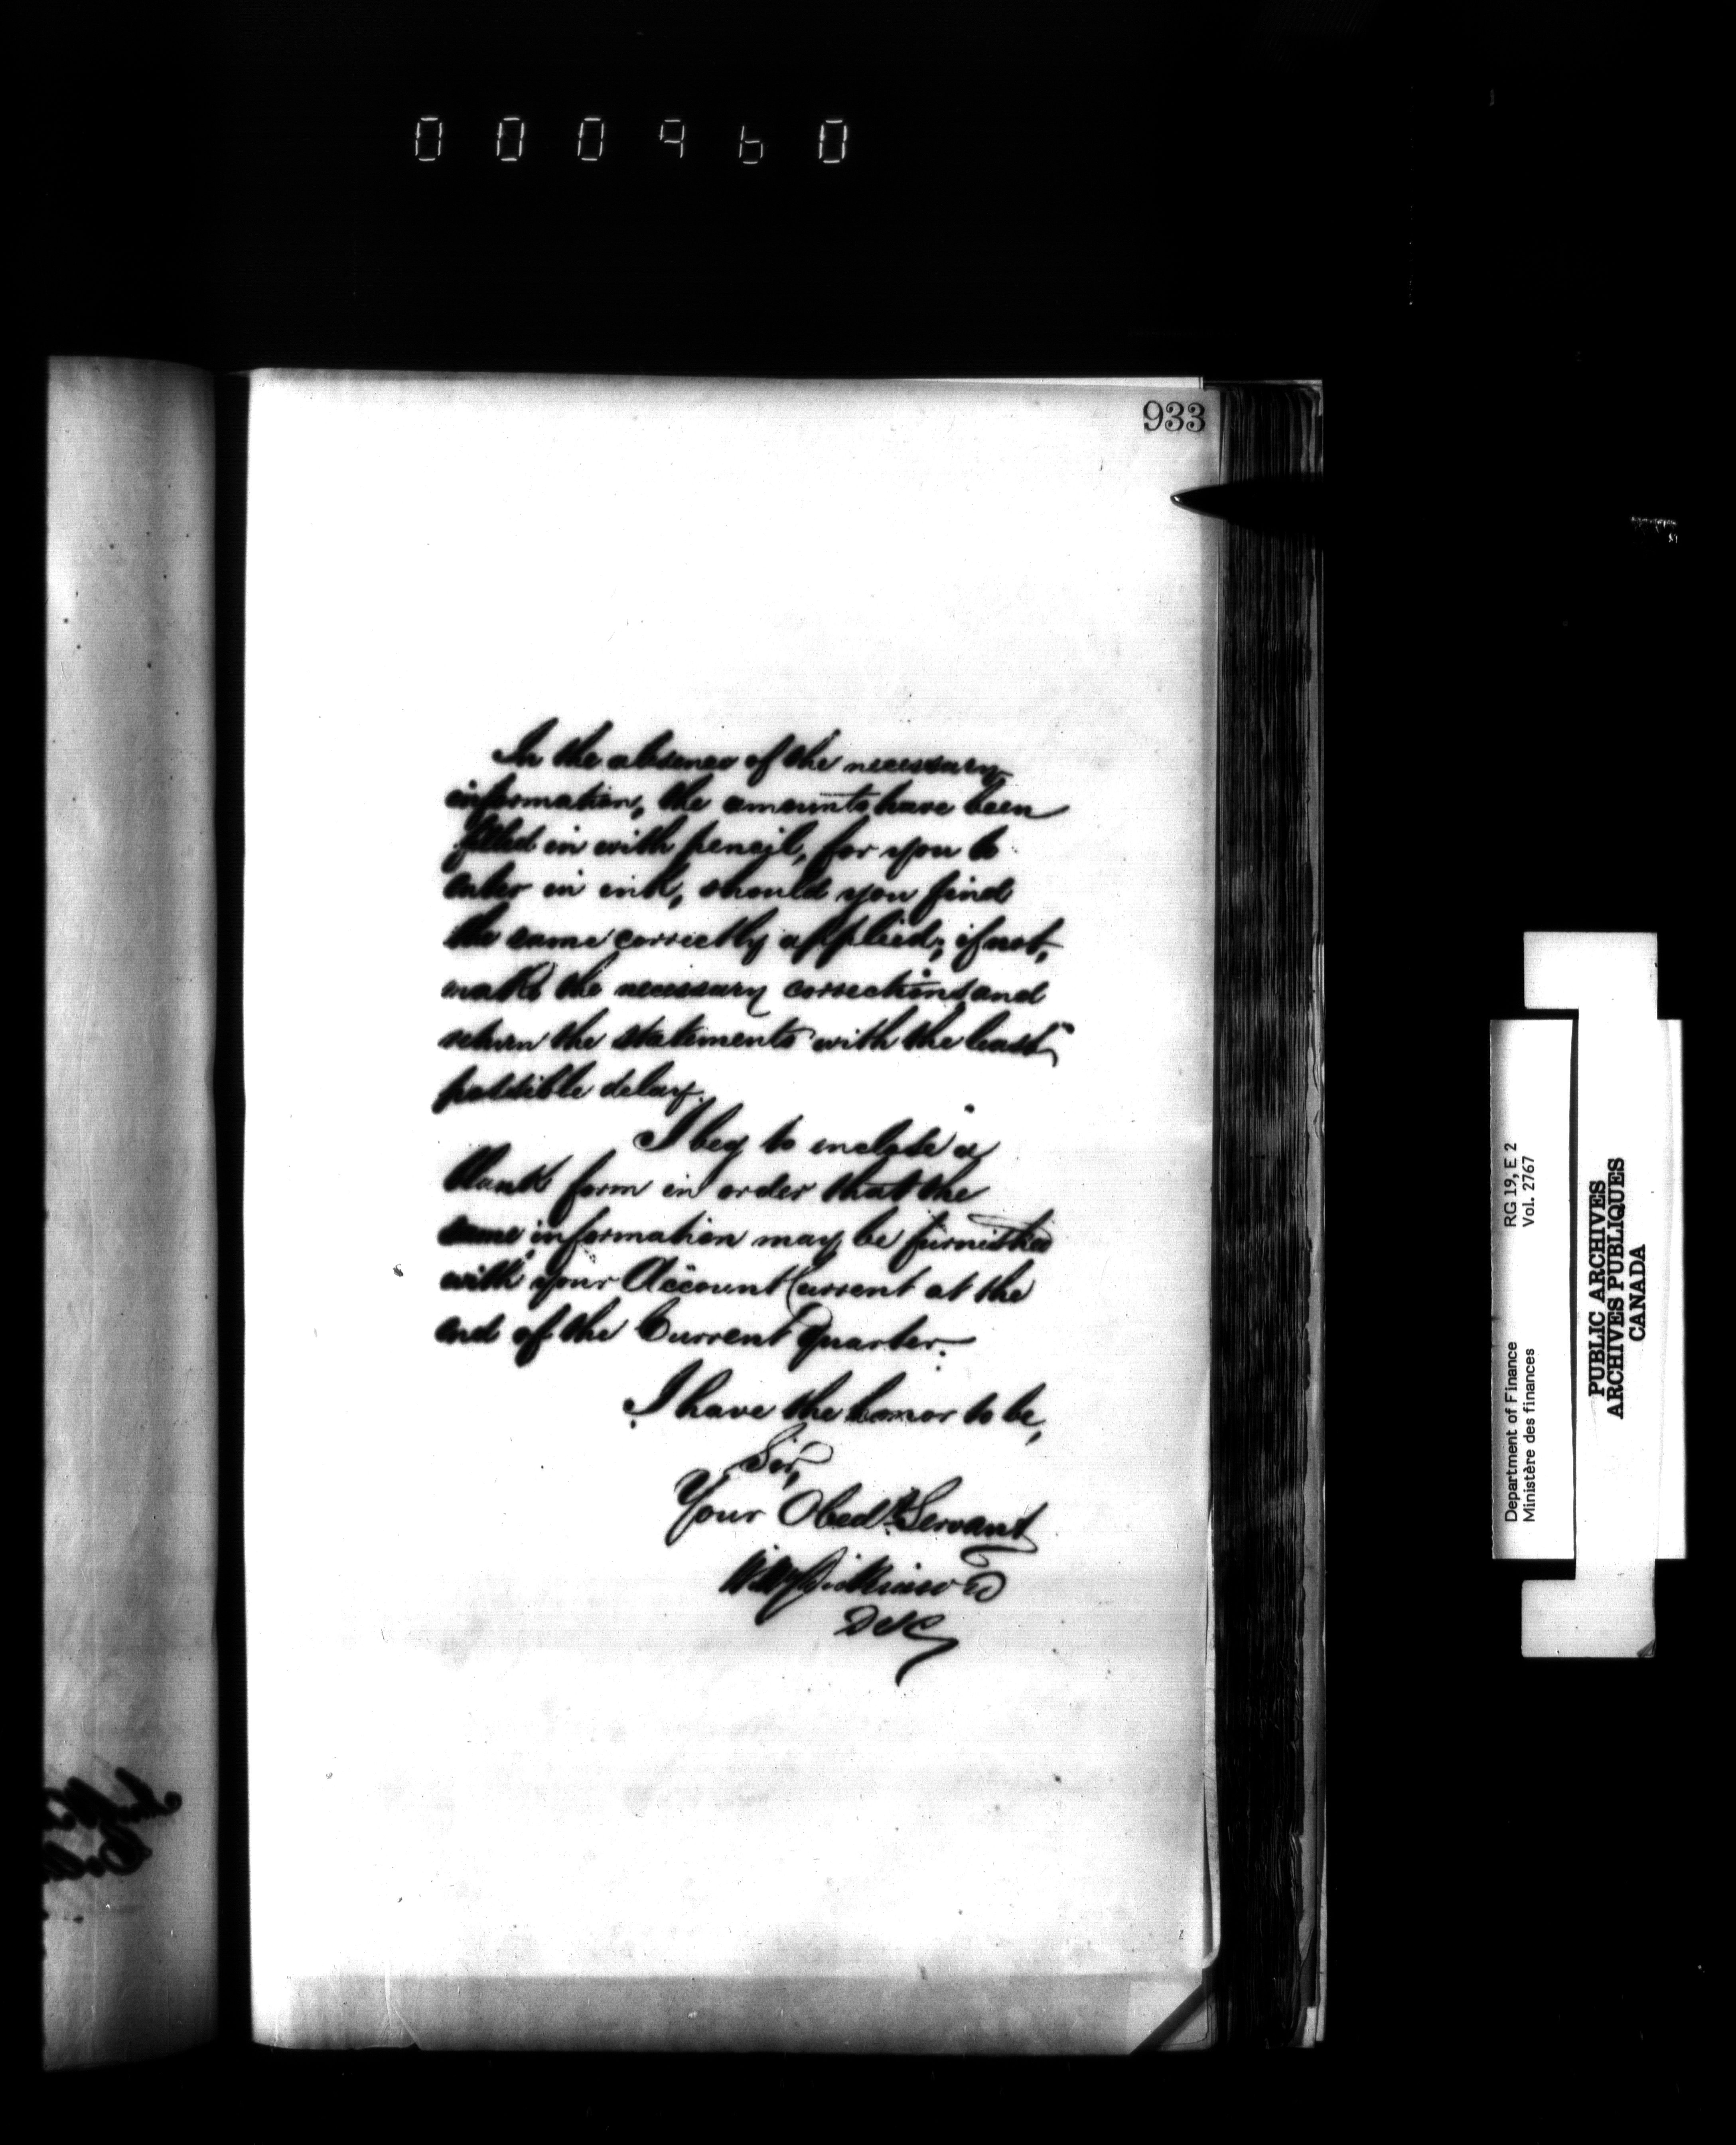 000960
933
In the absence of the necessary
information, the amounts have been
filled in with pencil, for you to
enter in ink, should you find
the same correctly applied; if not,
make the necessary corrections and
return the statements with the least
possible delay.
I beg to inclose a
blank form in order that the
same information may be furnished
with your Account Current at the
end of the Current Quarter.
I have the honor to be,
Sir,
Your Obedt Servant
Wm Dickinson
Department of Finance RG 19, E 2
Ministère des finances Vol. 2767
PUBLIC ARCHIVES
ARCHIVES PUBLIQUES
CANADA